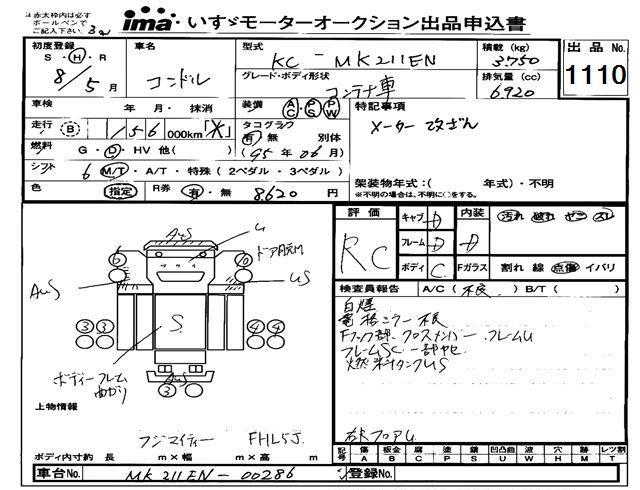 ※赤太枠内は必ず
ボールペンで
ご記入下さい
ima いすゞモーターオークション出品申込書
初度登録
S・H・R
8/5月
車名
コンドル
型式
KC-MK211EN
グレード・ボディ形状
コンテナ車
積載 (kg)
3750
排気量 (cc)
6920
出品 No.
1110
車検 年 月・抹消
装備 AC・PS・PW
特記事項
メーター改ざん
走行 B 156 000km *
タコグラフ
有・無 別体
(95年06月)
燃料 G・D・HV 他( )
シフト 6 M/T・A/T・特殊(2ペダル・3ペダル)
架装物年式:( 年式)・不明
※不明の場合は、不明に○をする。
色 指定 R券 有・無 8620 円
評価
RC
キャブ D
フレーム D
ボディ C
内装 D
汚れ 破れ コゲ スレ
Fガラス 割れ 線 点傷 イバリ
検査員報告 A/C(不良) B/T( )
白煙
電格ミラー不良
Fフック部クロスメンバー・フレームU
フレームSC 一部ヤセ
燃料タンクUS
右床フロアU
AUS
U
ドア内ヘコU
6
10
AUS
US
S
3 3
4 4
AUS
3
ボディーフレーム
曲がり
上物情報
フジマイティー FHL5J
ボディ内寸約 長 m×幅 m×高 m
記号 傷 A 板金 B 腐 C 塗 P 錆 S 凹凸曲 U 波 W 穴 H 跡 M レツ割 T
車台No. MK211EN-00286
登録No.